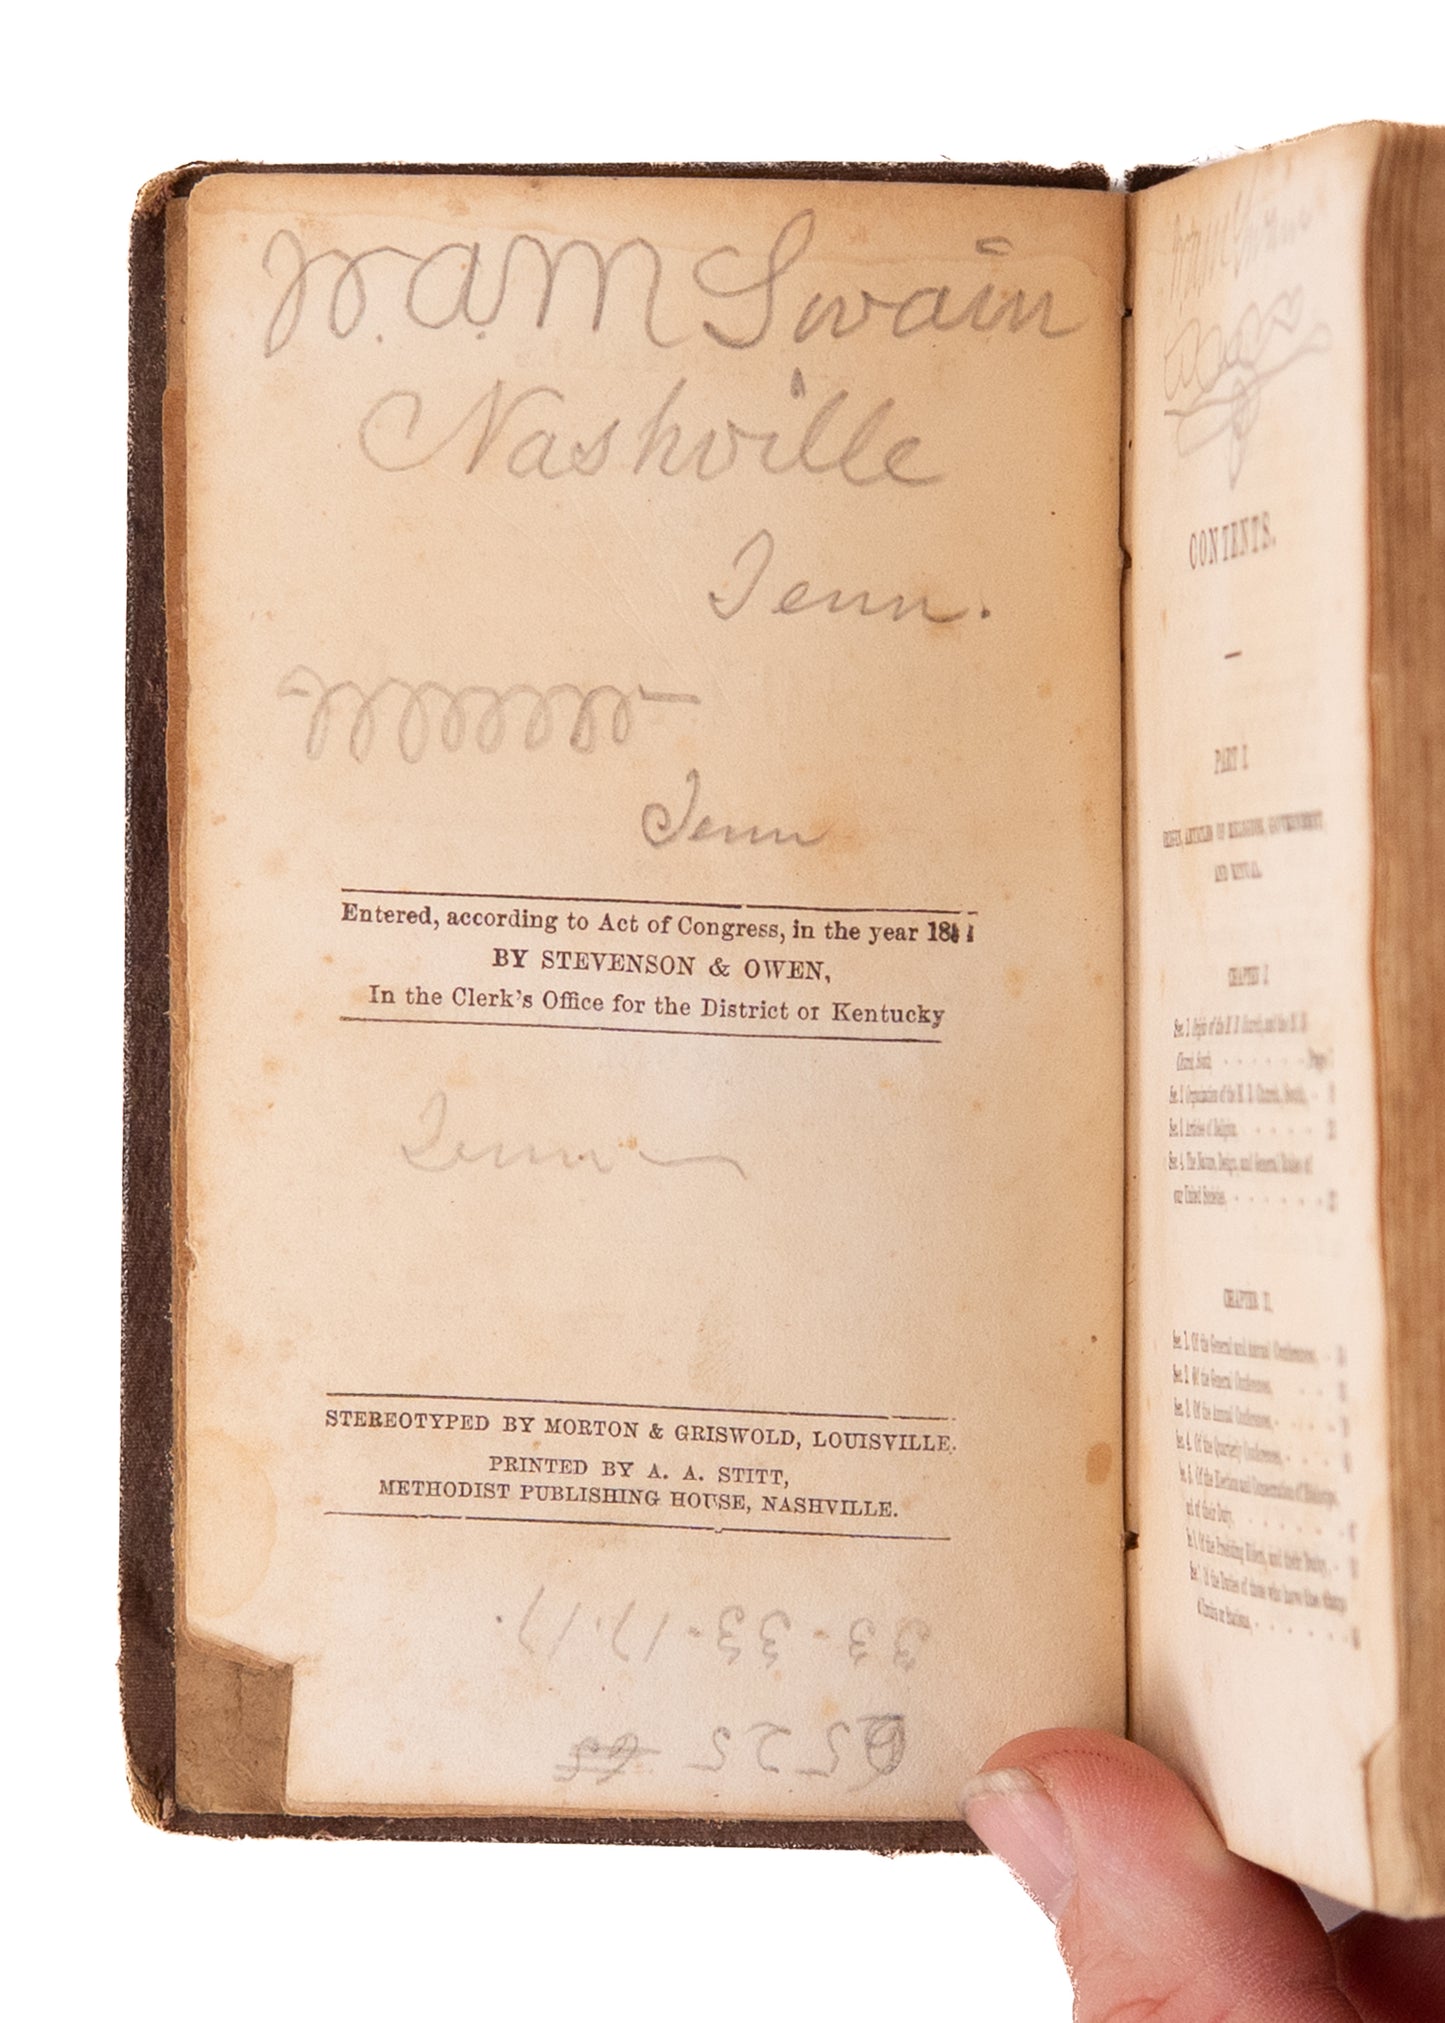 W. A. M Swain
Nashville
Tenn.
Tenn
Entered, according to Act of Congress, in the year
BY STEVENSON & OWEN,
In the Clerk's Office for the District or Kentucky
Tenn
STEREOTYPED BY MORTON & GRISWOLD, LOUISVILLE.
PRINTED BY A. A. STITT,
METHODIST PUBLISHING HOUSE, NASHVILLE.
33-33-17-17.
6525 65
CONTENTS.
PART I.
ARTICLES OF RELIGION, GOVERNMENT
AND RITUAL.
CHAPTER I.
Sec. 1 Origin of the M. E. Church, and the M. E.
Church, South, - - - - - - Page
Sec. 2 Organization of the M. E. Church, South, -
Sec. 3 Articles of Religion, - - - -
Sec. 4. The Nature, Design, and General Rules of
our United Societies, - - - - - -
CHAPTER II.
Sec. 1. Of the General and Annual Conferences, -
Sec. 2. Of the General Conference, - - -
Sec. 3. Of the Annual Conferences, - - - -
Sec. 4. Of the Quarterly Conferences, - - -
Sec. 5. Of the Election and Consecration of Bishops,
and of their Duty, - - - - - -
Of the Presiding Elders, and their Duty, -
Of the Duties of those who have the charge
of Circuits or Stations, - - - - - -